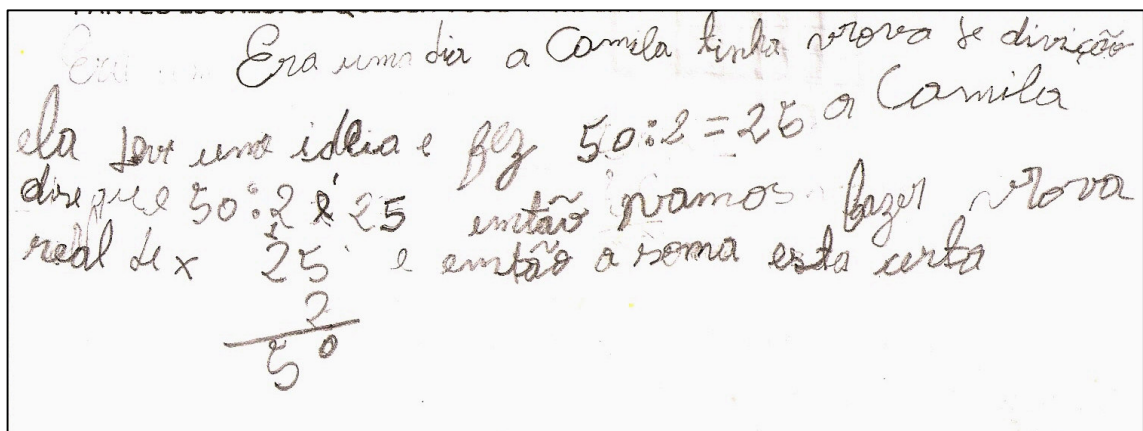 Era uma dia a Camila tinha prova de divição
ela teve uma idéia e fez 50:2=25 a Camila
dise que 50:2 é 25 emtão vamos fazer prova
real de x 25 e emtão a soma esta certa
2
50